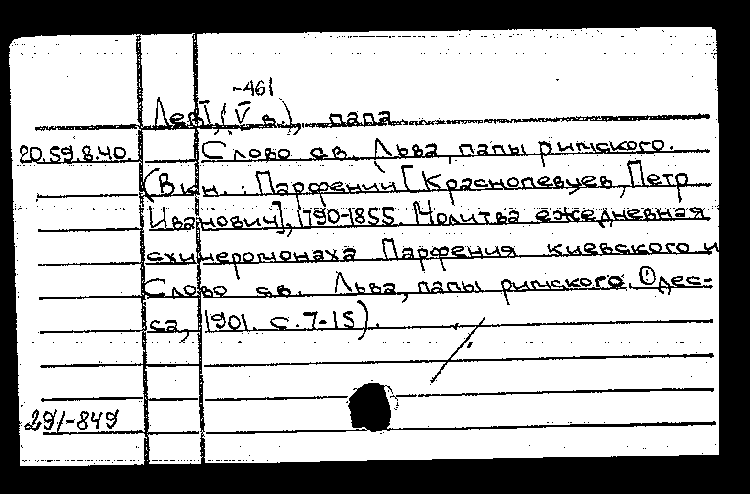 -461
Лев I, (V в.), папа
20.59.8.40. Слово св. Льва, папы римского.
(В кн.: Парфений [Краснопевцев, Петр
Иванович], 1790-1855. Молитва ежедневная
схииеромонаха Парфения киевского и
Слово св. Льва, папы римского. Одес-
са, 1901. с. 7-15).
291-849